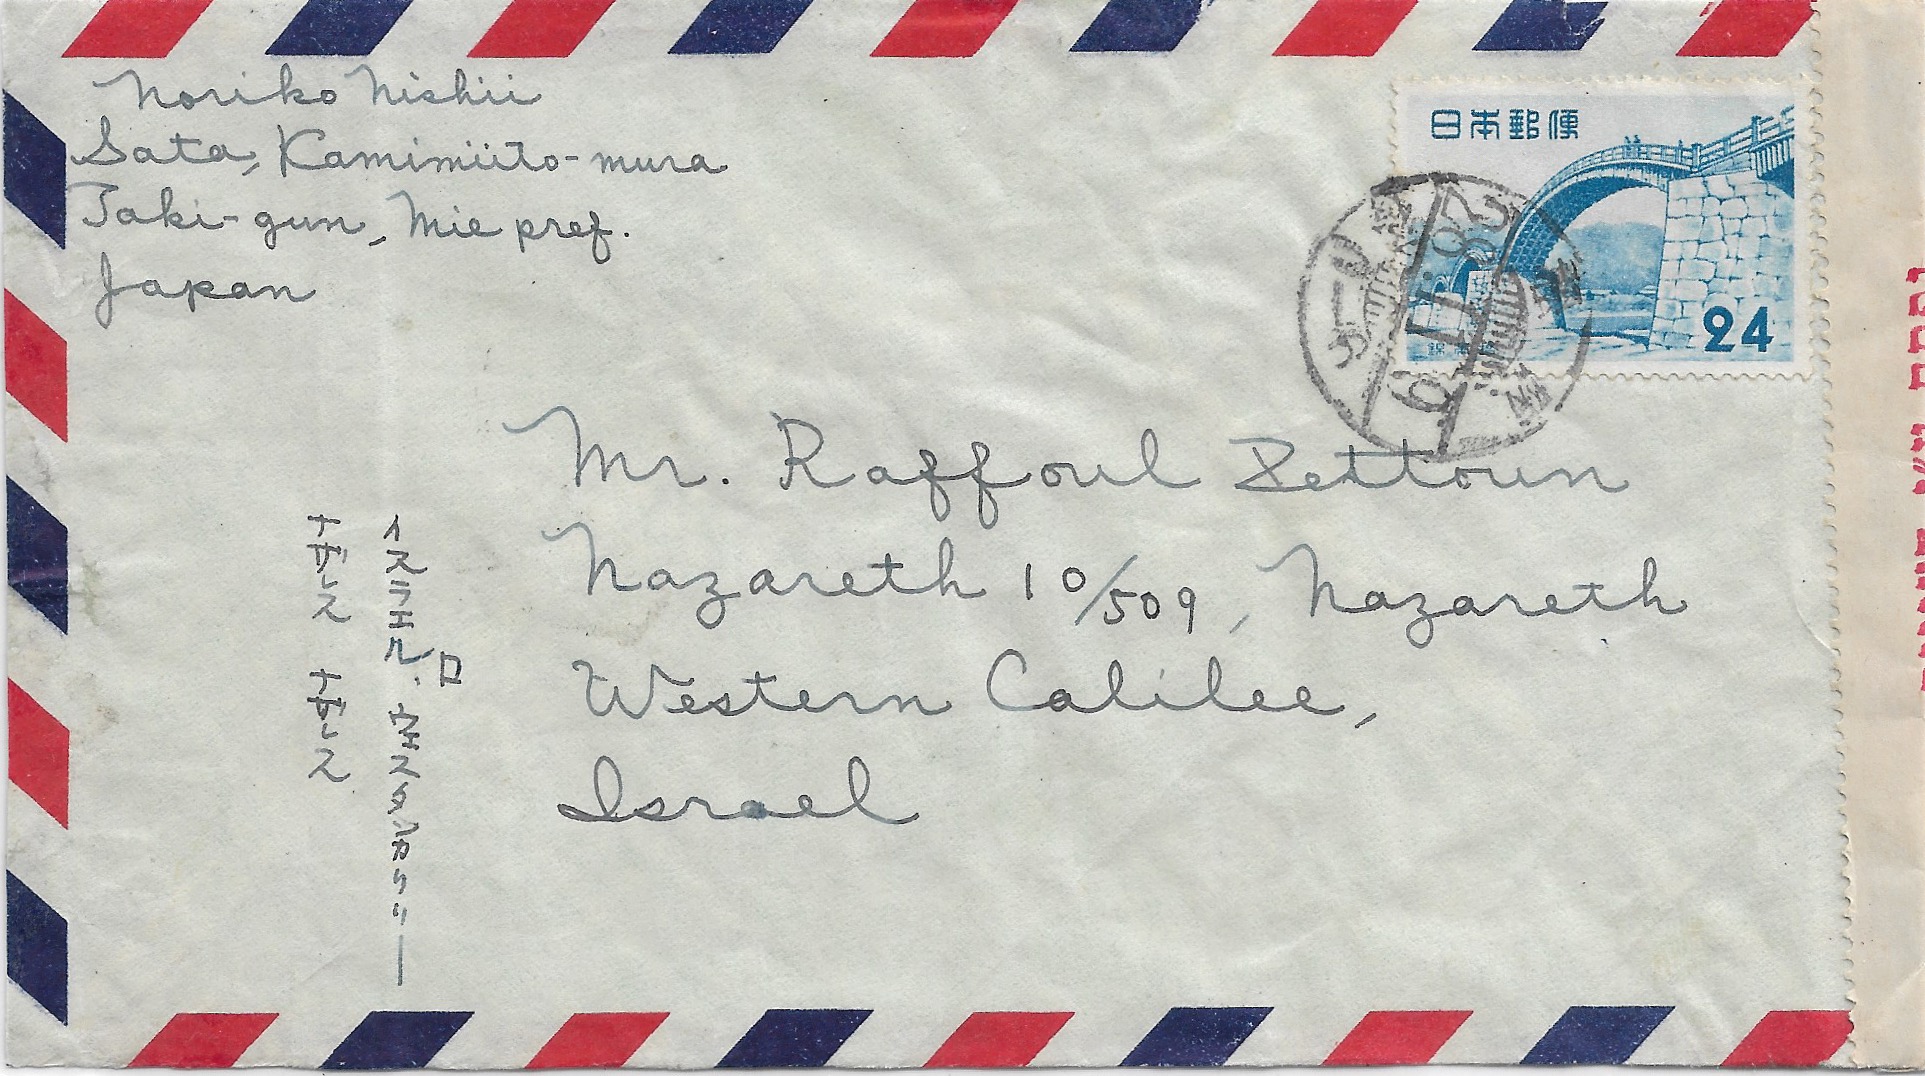 Noriko Nishii
Sata, Kamimiito-mura
Taki-gun, Mie pref.
Japan
日本郵便
24
28.11.9
Mr. Raffoul Zettoun
Nazareth 10/509, Nazareth
Western Calilee,
Israel
イスラエル・ウエスタンカリリー
ナザレス ナザレス